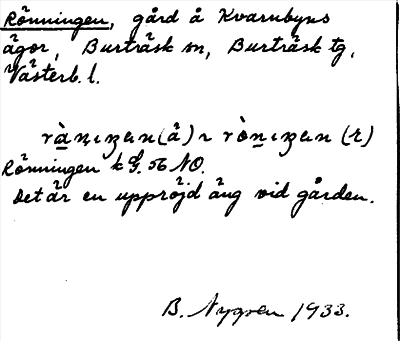 Rönningen, gård å Kvarnbyns
ägor, Burträsk sn, Burträsk tg,
Västerb. l.
Rönningen k G. 56 NO.
Det är en uppröjd äng vid gården.
B. Nygren 1933.